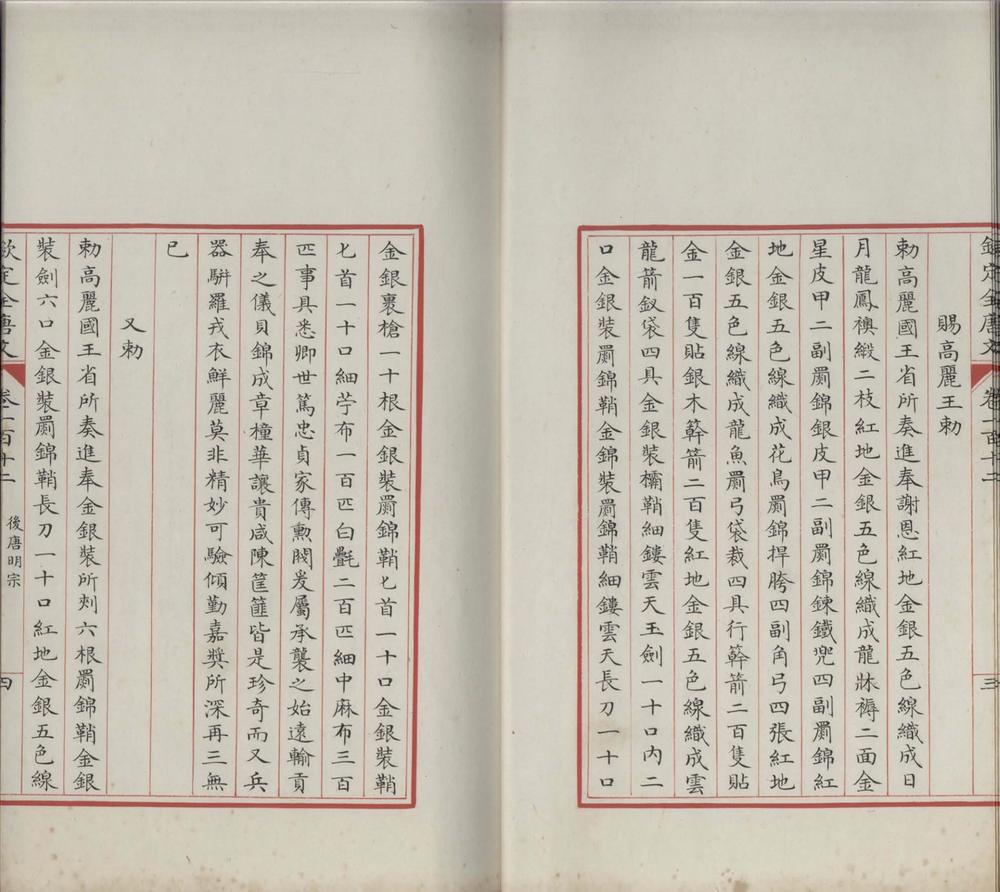 欽定全唐文 卷一百十二 三
賜高麗王勅
勅高麗國王省所奏進奉謝恩紅地金銀五色線織成日
月龍鳳襖緞二枝紅地金銀五色線織成龍牀褥二面金
星皮甲二副罽錦銀皮甲二副罽錦鍊鐵兜四副罽錦紅
地金銀五色線織成花鳥罽錦捍胯四副角弓四張紅地
金銀五色線織成龍魚罽弓袋裁四具行簳箭二百隻貼
金一百隻貼銀木簳箭二百隻紅地金銀五色線織成雲
龍箭釵袋四具金銀裝橚鞘細鏤雲天玉劍一十口內二
口金銀裝罽錦鞘金錦裝罽錦鞘細鏤雲天長刀一十口
金銀裹槍一十根金銀裝罽錦鞘匕首一十口金銀裝鞘
匕首一十口細苧布一百匹白㲲二百匹細中麻布三百
匹事具悉卿世篤忠貞家傳勲閥爰屬承襲之始遠輸貢
奉之儀貝錦成章橦華讓貴咸陳筐篚皆是珍奇而又兵
器駢羅戎衣鮮麗莫非精妙可驗傾勤嘉獎所深再三無
已
又勅
勅高麗國王省所奏進奉金銀裝所刺六根罽錦鞘金銀
裝劍六口金銀裝罽錦鞘長刀一十口紅地金銀五色線
欽定全唐文 卷一百十二 後唐明宗 四